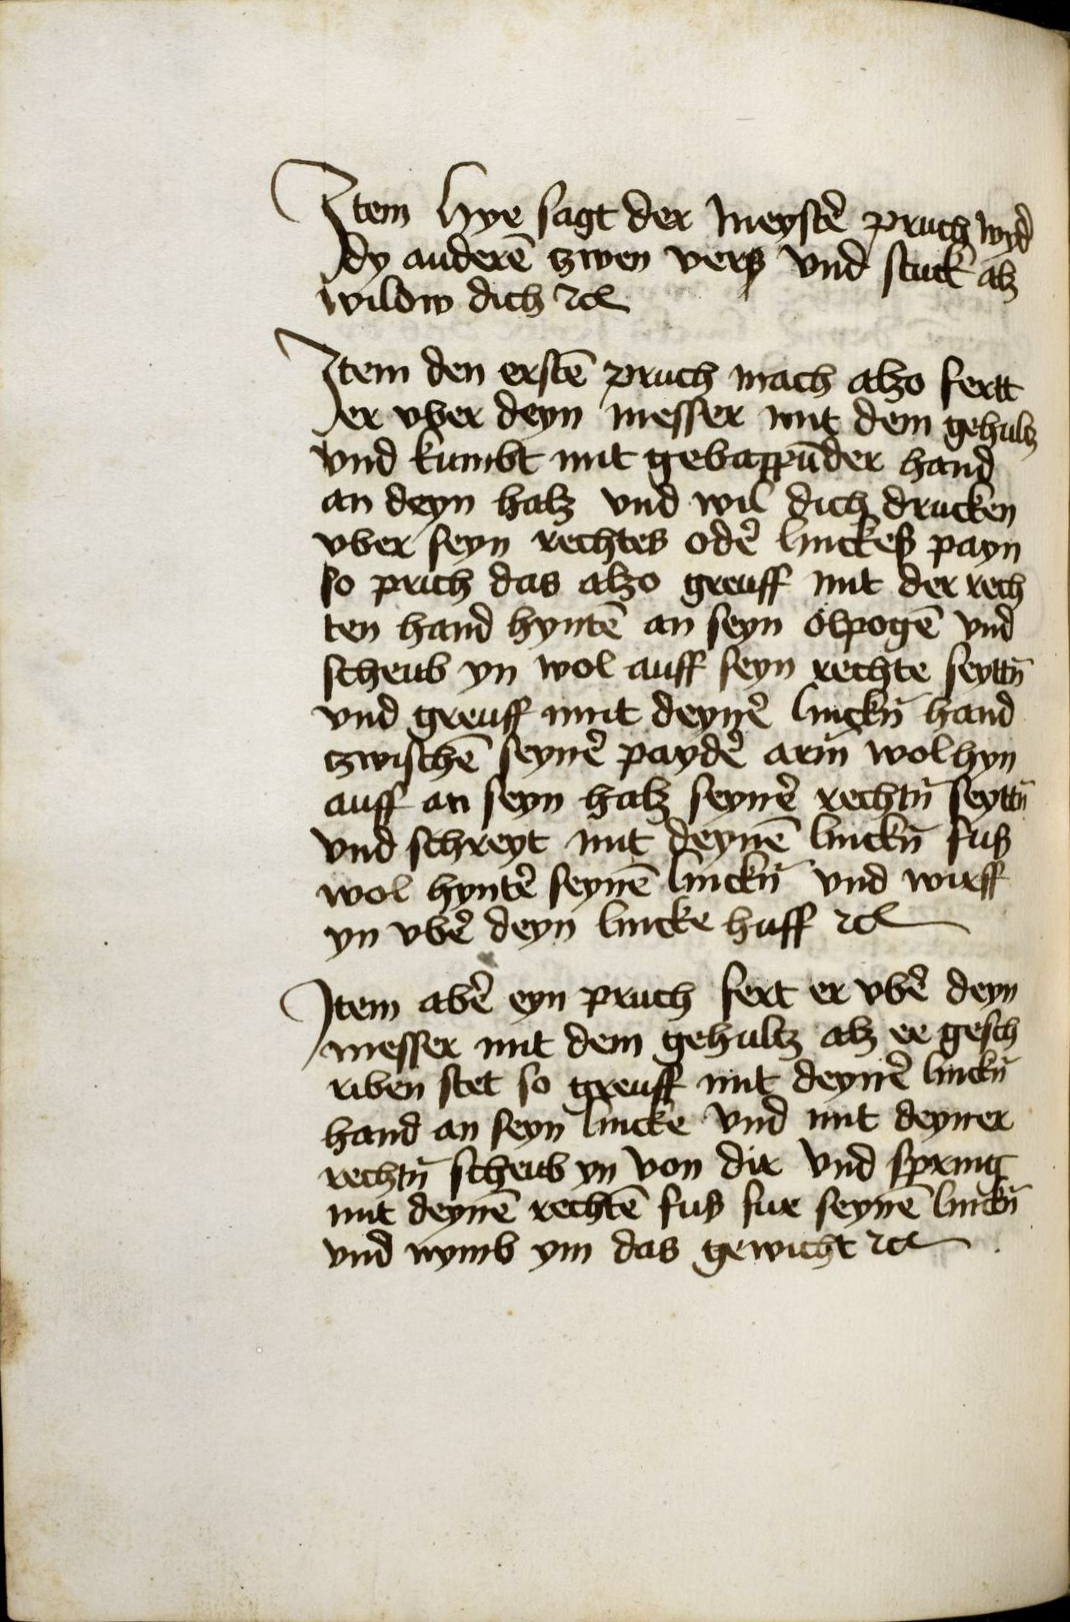 Item hye sagt der meyst̄e pruch wyd̄
dy anderē zwen vers vnd stuck alz
wildw dich ⁊cꝭ
Item den erstē pruch mach alzo fertt
er vber deyn messer mit dem gehultz
vnd kumbt mit gebappūder hand
an deyn halz vnd wil dich drucken
vber seyn rechtes od̄e linckes payn
so prich das alzo greuff mit der rech
ten hand hyntē an seyn ölpogē vnd
scheub yn wol auff seyn rechte seyttn̄
vnd greuff mit deyn̄e linckn̄ hand
zwischē seyn̄e payd̄e arm wol hyn
auff an seyn halz seyn̄e rechtn̄ seyttn̄
vnd schreyt mit deynē linckn̄ fuß
wol hynt̄e seynē linckn̄ vnd wirff
yn vb̄e deyn lincke huff ⁊cꝭ
Item ab̄e eyn pruch fert er vb̄e deyn
messer mit dem gehultz alz ee gesch
riben stet so greuff mit deyn̄e linckn̄
hand an seyn lincke vnd mit deyner
rechtn̄ scheub yn von dir vnd spring
mit deynē rechtē fuß fur seynē linckn̄
vnd nymb ym das gewicht ⁊cꝭ